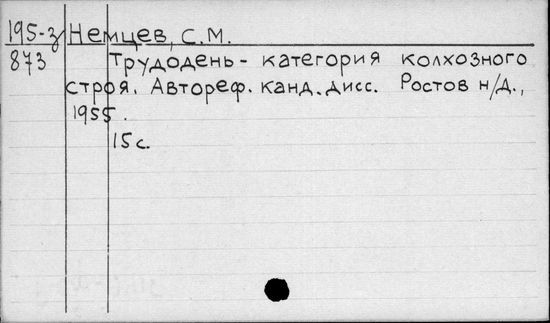 195-з Немцев, С.М.
873 Трудодень - категория колхозного
строя. Автореф. канд. дисс. Ростов н/Д.,
1955.
15 с.